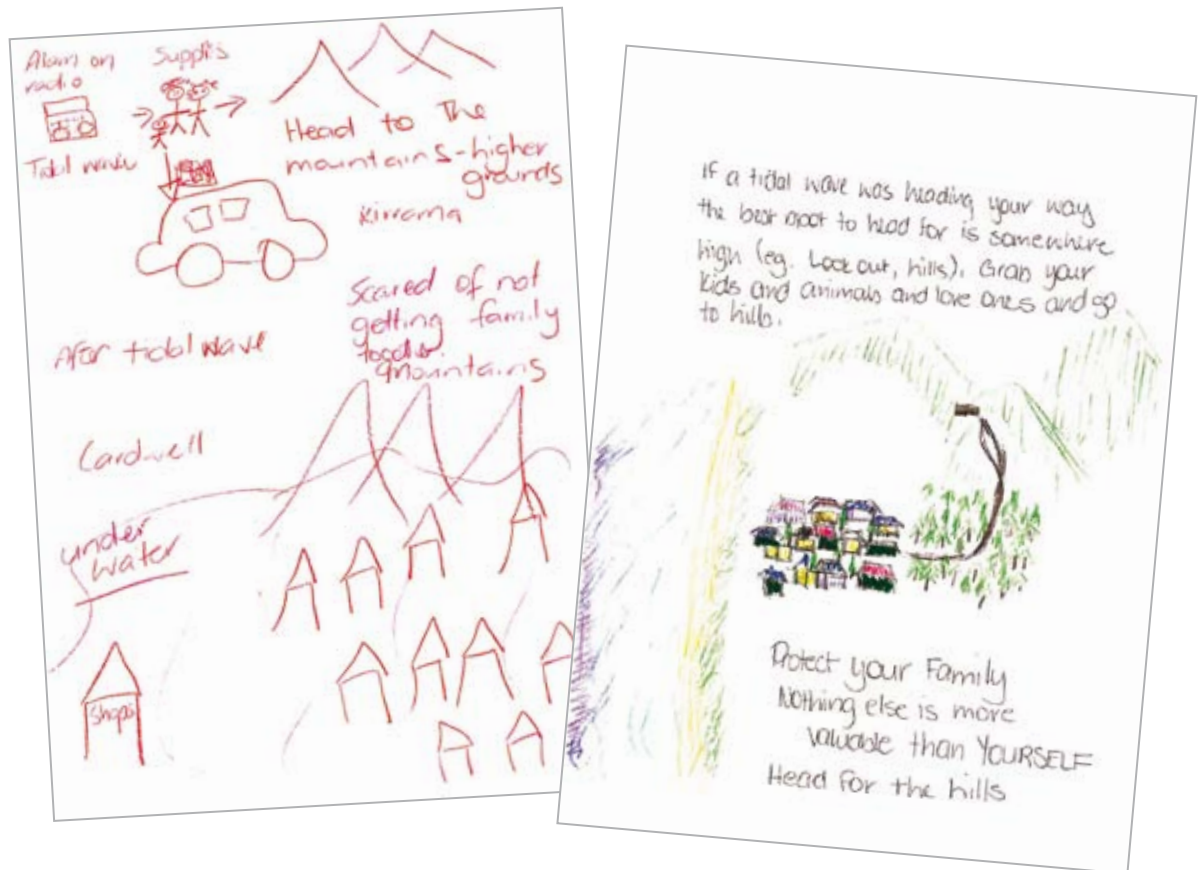 Alarm on
radio
Supplis
Tidal wave
Head to the
mountains-higher
grounds
Kirrama
Scared of not
getting family
togeder.
mountains
After tidal wave
Cardwell
under
water
Shops
If a tidal wave was heading your way
the best spot to head for is somewhere
high (eg. Look out, hills). Grab your
kids and animals and love ones and go
to hills.
Protect your Family
Nothing else is more
valuable than YOURSELF
Head for the hills